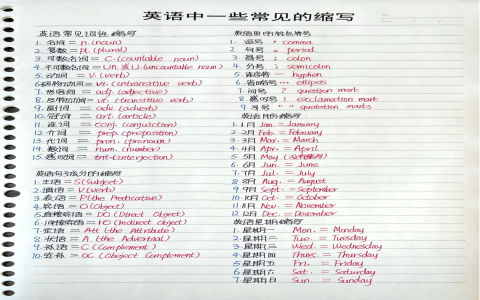 英语中一些常见的缩写
英语常见词性缩写
1. 名词 = n.(noun)
2. 复数 = pl.(plural)
3. 可数名词 = C.(countable noun)
4. 不可数名词 = (uncountable noun)
5. 动词 = V.(verb)
6. = vi.(intransitive verb)
7. 形容词 = adj.(adjective)
8. 及物动词 = vt.(transitive verb)
9. 副词 = adv.(adverb)
10. 冠词 = art.(article)
11. 连词 = conj.(conjuction)
12. 介词 = prep.(preposition)
13. 代词 = pron.(pronoun)
14. 数词 = num.(number)
15. 感叹词 = int.(interjection)
英语句子成分的缩写
1. 主语 = S(Subject)
2. 谓语 = V(verb)
3. 表语 = P(the Predicative)
4. 宾语 = O(Object)
5. 直接宾语 = DO(Direct Object)
6. 间接宾语 = IO(Indirect Object)
7. 定语 = Att(the Attribute)
8. 状语 = A(the Adverbial)
9. 补语 = C(Complement)
10. 宾补 = OC(Object Complement)
英语里的标点符号
1. 逗号 , comma
2. 句号 . period
3. 冒号 : colon
4. 分号 ; semicolon
5. 连字符 - hyphen
6. 省略号 ... ellipsis
7. 问号 ? question mark
8. 感叹号 ! exclamation mark
9. 引号 “” quotation marks
英语月份缩写
1. 1月 Jan. = January
2. 2月 Feb. = February
3. 3月 Mar. = March
4. 4月 Apr. = April
5. 5月 May (没有缩写)
6. 6月 Jun. = June
7. 7月 Jul. = July
8. 8月 Aug. = August
9. 9月 Sept. = September
10. 10月 Oct. = October
11. 11月 Nov. = November
12. 12月 Dec. = December
英语星期缩写
1. 星期一 Mon. = Monday
2. 星期二 Tue. = Tuesday
3. 星期三 Wed. = Wednesday
4. 星期四 Thurs. = Thursday
5. 星期五 Fri. = Friday
6. 星期六 Sat. = Saturday
7. 星期日 Sun. = Sunday